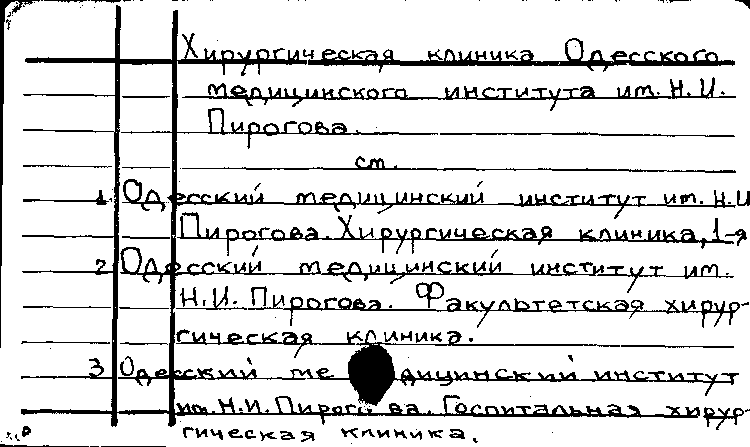 Хирургическая клиника Одесского
медицинского института им. Н.И.
Пирогова.
см.
1. Одесский медицинский институт им. Н.И
Пирогова. Хирургическая клиника, 1-я
2 Одесский медицинский институт им.
Н.И. Пирогова. Факультетская хирур-
гическая клиника.
3 Одесский ме дицинский институт
им. Н.И. Пирого ва. Госпитальная хирур-
гическая клиника.